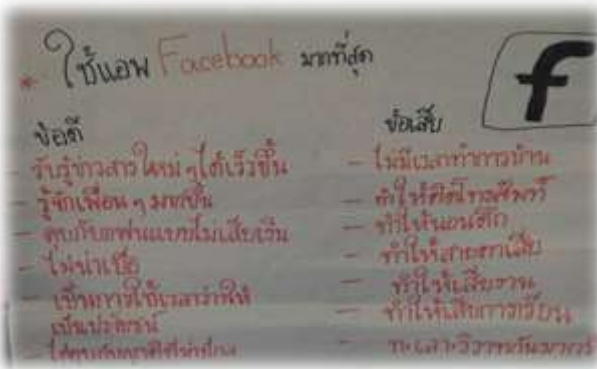 * ใช้แอพ Facebook มากที่สุด
f
ข้อดี
- รับรู้ข่าวสารใหม่ ๆ ได้เร็วขึ้น
- รู้จักเพื่อน ๆ มากขึ้น
- คุยกับแฟนแบบไม่เสียเงิน
- ไม่น่าเบื่อ
- เป็นการใช้เวลาว่างให้
เป็นประโยชน์
- ได้คุยกับญาติที่
ข้อเสีย
- ไม่มีเวลาทำการบ้าน
- ทำให้ติดโทรศัพท์
- ทำให้นอนดึก
- ทำให้สายตาเสีย
- ทำให้เสียงาน
- ทำให้เสียการเรียน
- ทะเลาะวิวาทกันมากขึ้น